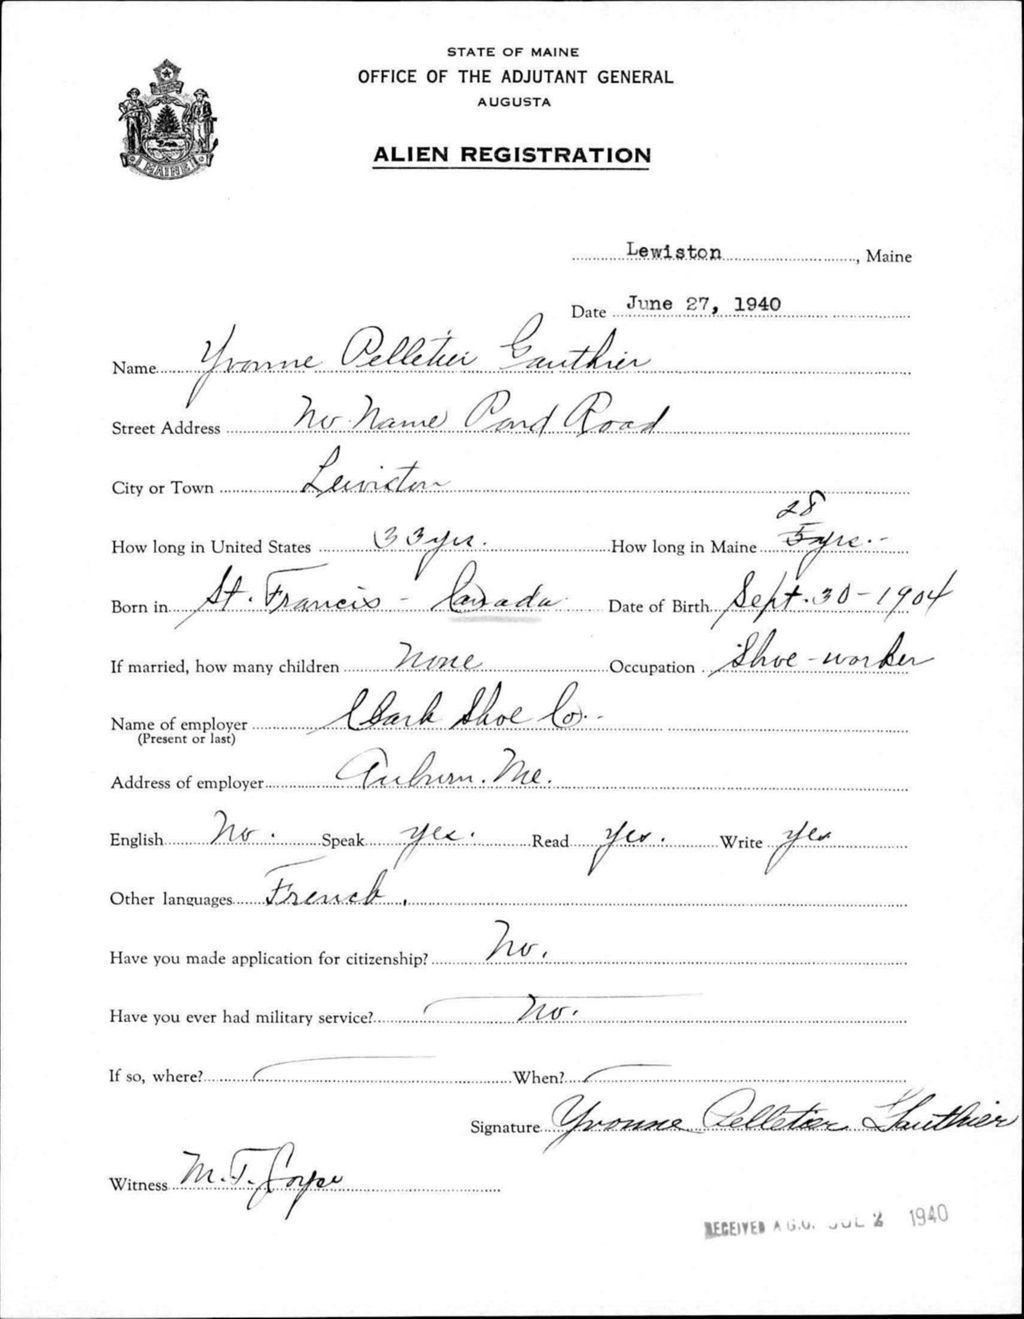 STATE OF MAINE
OFFICE OF THE ADJUTANT GENERAL
AUGUSTA
MAINE
ALIEN REGISTRATION
Lewiston, Maine
Date June 27, 1940
Name Yvonne Pelletier Gauthier
Street Address No Name Pond Road
City or Town Lewiston
28
How long in United States 33 yrs. How long in Maine 5 yrs.
Born in St. Francis - Canada Date of Birth Sept. 30 - 1904
If married, how many children None Occupation Shoe-worker
Name of employer Clark Shoe Co.
(Present or last)
Address of employer Auburn. Me.
English No. Speak yes. Read yes. Write yes
Other languages French.
Have you made application for citizenship? No.
Have you ever had military service? No.
If so, where? When?
Signature Yvonne Pelletier Gauthier
Witness M. T.
RECEIVED A.G.O. JUL 2 1940